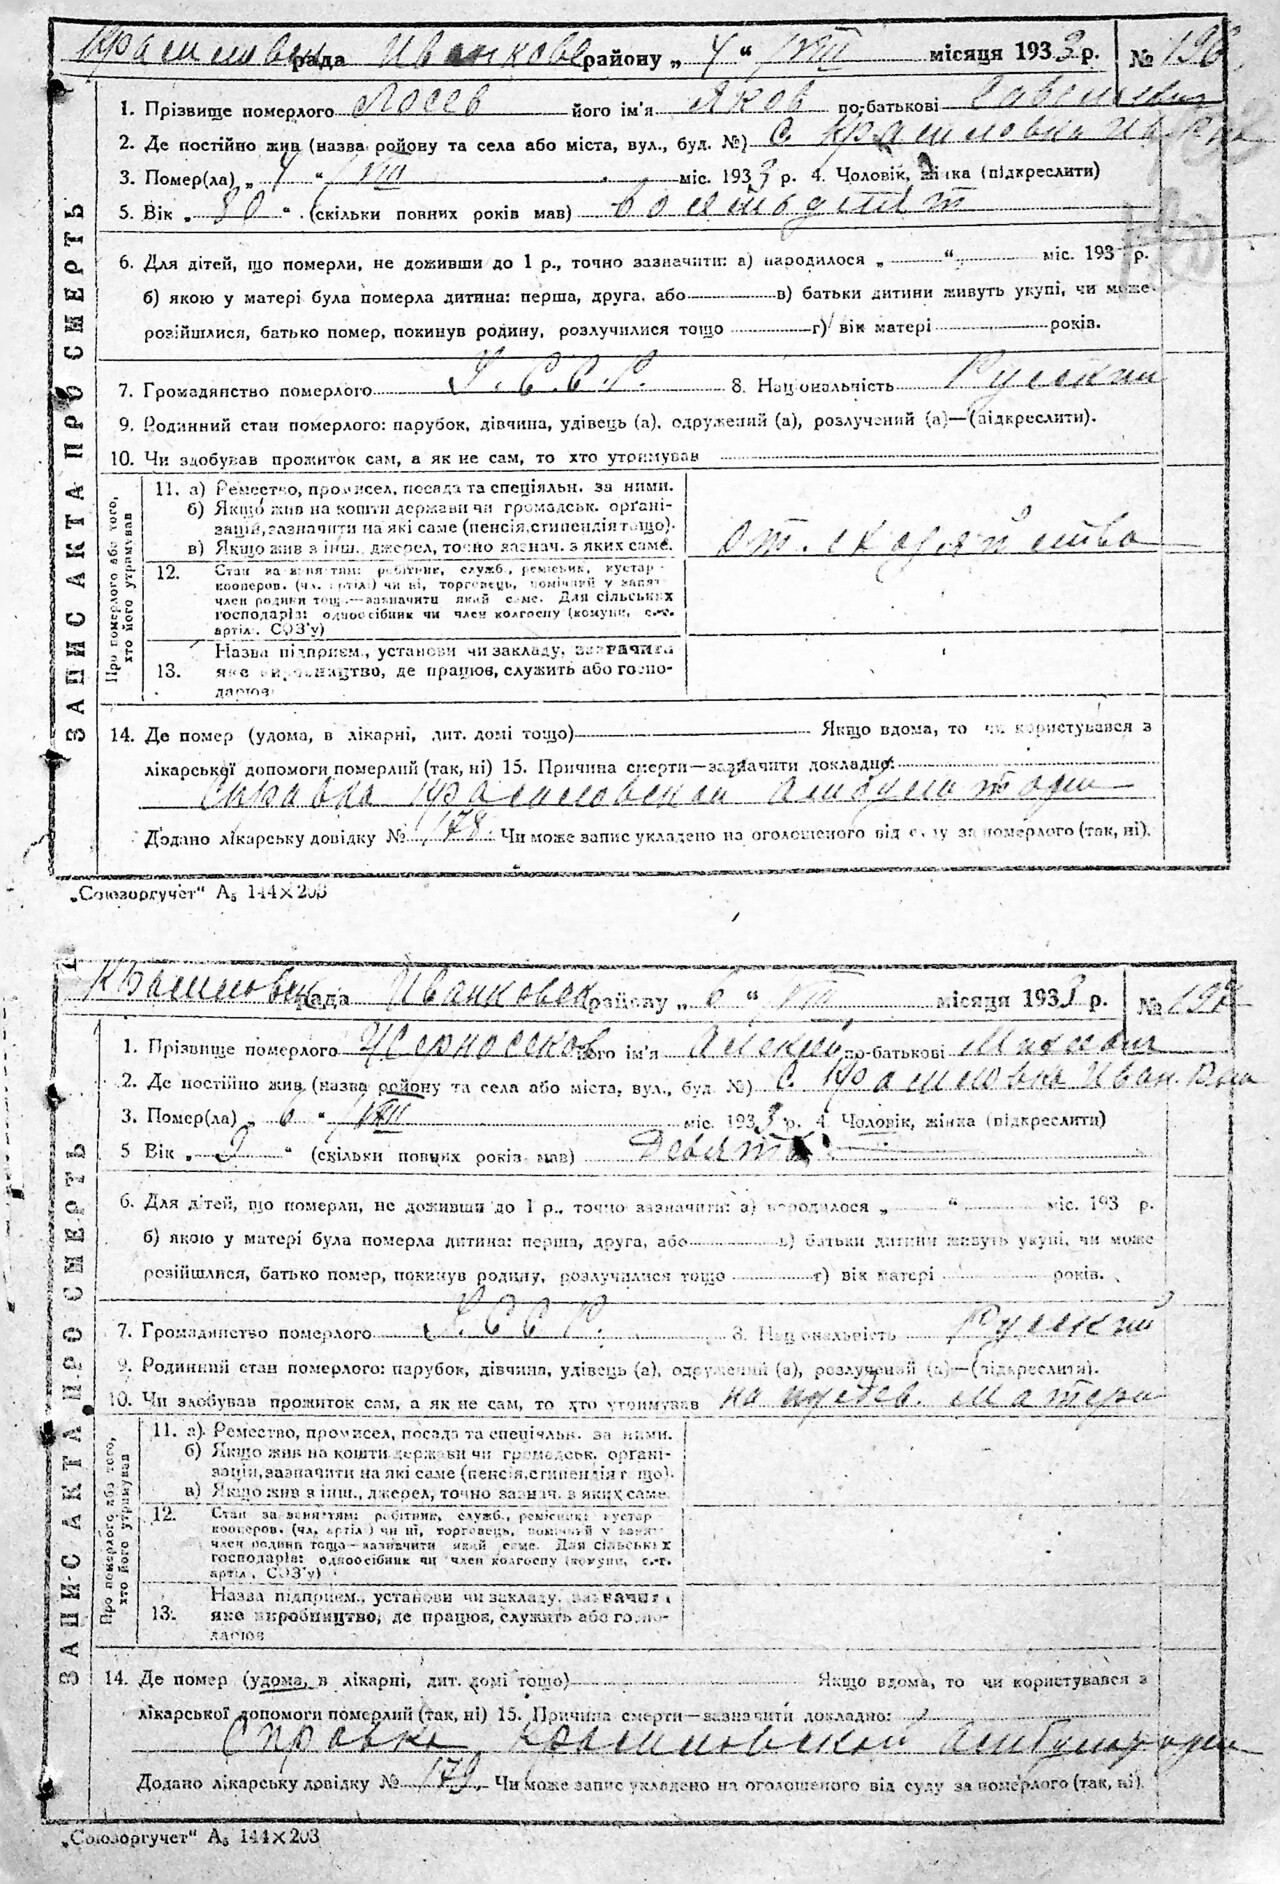 ЗАПИС АКТА ПРО СМЕРТЬ
рада району „ 4 “ VIII місяця 1933 р. № 196
1. Прізвище померлого Лосев його ім'я Яков по-батькові
2. Де постійно жив (назва району та села або міста, вул., буд. №) с.
3. Помер(ла) „ 4 “ VIII міс. 1933 р. 4. Чоловік, жінка (підкреслити)
5. Вік „ 80 “ (скільки повних років мав) восемьдесят
6. Для дітей, що померли, не доживши до 1 р., точно зазначити: а) народилося „ “ міс. 193 р.
б) якою у матері була померла дитина: перша, друга, або в) батьки дитини живуть укупі, чи може
розійшлися, батько помер, покинув родину, розлучилися тощо г) вік матері років.
7. Громадянство померлого У.С.С.Р. 8. Національність Русский
9. Родинний стан померлого: парубок, дівчина, удівець (а), одружений (а), розлучений (а)—(підкреслити).
10. Чи здобував прожиток сам, а як не сам, то хто утримував
Про померлого або того, хто його утримував
11. а) Ремество, промисел, посада та спеціяльн. за ними.
б) Якщо жив на кошти держави чи громадськ. органі-
зацій, зазначити на які саме (пенсія, стипендія тощо).
в) Якщо жив з інш. джерел, точно зазнач. з яких саме.
12. Стан за заняттям: робітник, служб., ремісник, кустар
кооперов. (чл. артілі) чи ні, торговець, помічний у занят.
член родини тощо—зазначити який саме. Для сільських
господарів: одноосібник чи член колгоспу (комуни, с.-г.
артіл., СОЗ'у)
13. Назва підприєм., установи чи закладу, зазначити
яке виробництво, де працює, служить або госпо-
дарює
14. Де помер (удома, в лікарні, дит. домі тощо) Якщо вдома, то чи користувався з
лікарської допомоги померлий (так, ні) 15. Причина смерти—зазначити докладно:
Справка Красиловской амбулатории
Додано лікарську довідку № 178 Чи може запис укладено на оголошеного від суду за померлого (так, ні).
„Союзоргучет“ А₅ 144×203
ЗАПИС АКТА ПРО СМЕРТЬ
рада Иванковск району „ 6 “ VIII місяця 1933 р. № 197
1. Прізвище померлого Черносеков його ім'я Алексей по-батькові
2. Де постійно жив (назва району та села або міста, вул., буд. №) с. Красиловка Иван. р-на
3. Помер(ла) „ 6 “ VIII міс. 1933 р. 4. Чоловік, жінка (підкреслити)
5 Вік „ 9 “ (скільки повних років мав) Девять
6. Для дітей, що померли, не доживши до 1 р., точно зазначити: а) народилося „ “ міс. 193 р.
б) якою у матері була померла дитина: перша, друга, або в) батьки дитини живуть укупі, чи може
розійшлися, батько помер, покинув родину, розлучилися тощо г) вік матері років.
7. Громадянство померлого У.С.С.Р. 8. Національність Русский
9. Родинний стан померлого: парубок, дівчина, удівець (а), одружений (а), розлучений (а)—(підкреслити).
10. Чи здобував прожиток сам, а як не сам, то хто утримував на матери
Про померлого або того, хто його утримував
11. а) Ремество, промисел, посада та спеціяльн. за ними.
б) Якщо жив на кошти держави чи громадськ. органі-
зацій, зазначити на які саме (пенсія, стипендія тощо).
в) Якщо жив з інш., джерел, точно зазнач. з яких саме
12. Стан за заняттям: робітник, служб., ремісник, кустар
кооперов. (чл. артілі) чи ні, торговець, помічний у занят.
член родини тощо—зазначити який саме. Для сільських
господарів: одноосібник чи член колгоспу (комуни, с.-г.
артіл., СОЗ'у)
13. Назва підприєм., установи чи закладу, зазначити
яке виробництво, де працює, служить або госпо-
дарює
14. Де помер (удома, в лікарні, дит. домі тощо) Якщо вдома, то чи користувався з
лікарської допомоги померлий (так, ні) 15. Причина смерти—зазначити докладно:
Справка Красиловской амбулатории
Додано лікарську довідку № 179 Чи може запис укладено на оголошеного від суду за померлого (так, ні).
„Союзоргучет“ А₅ 144×203